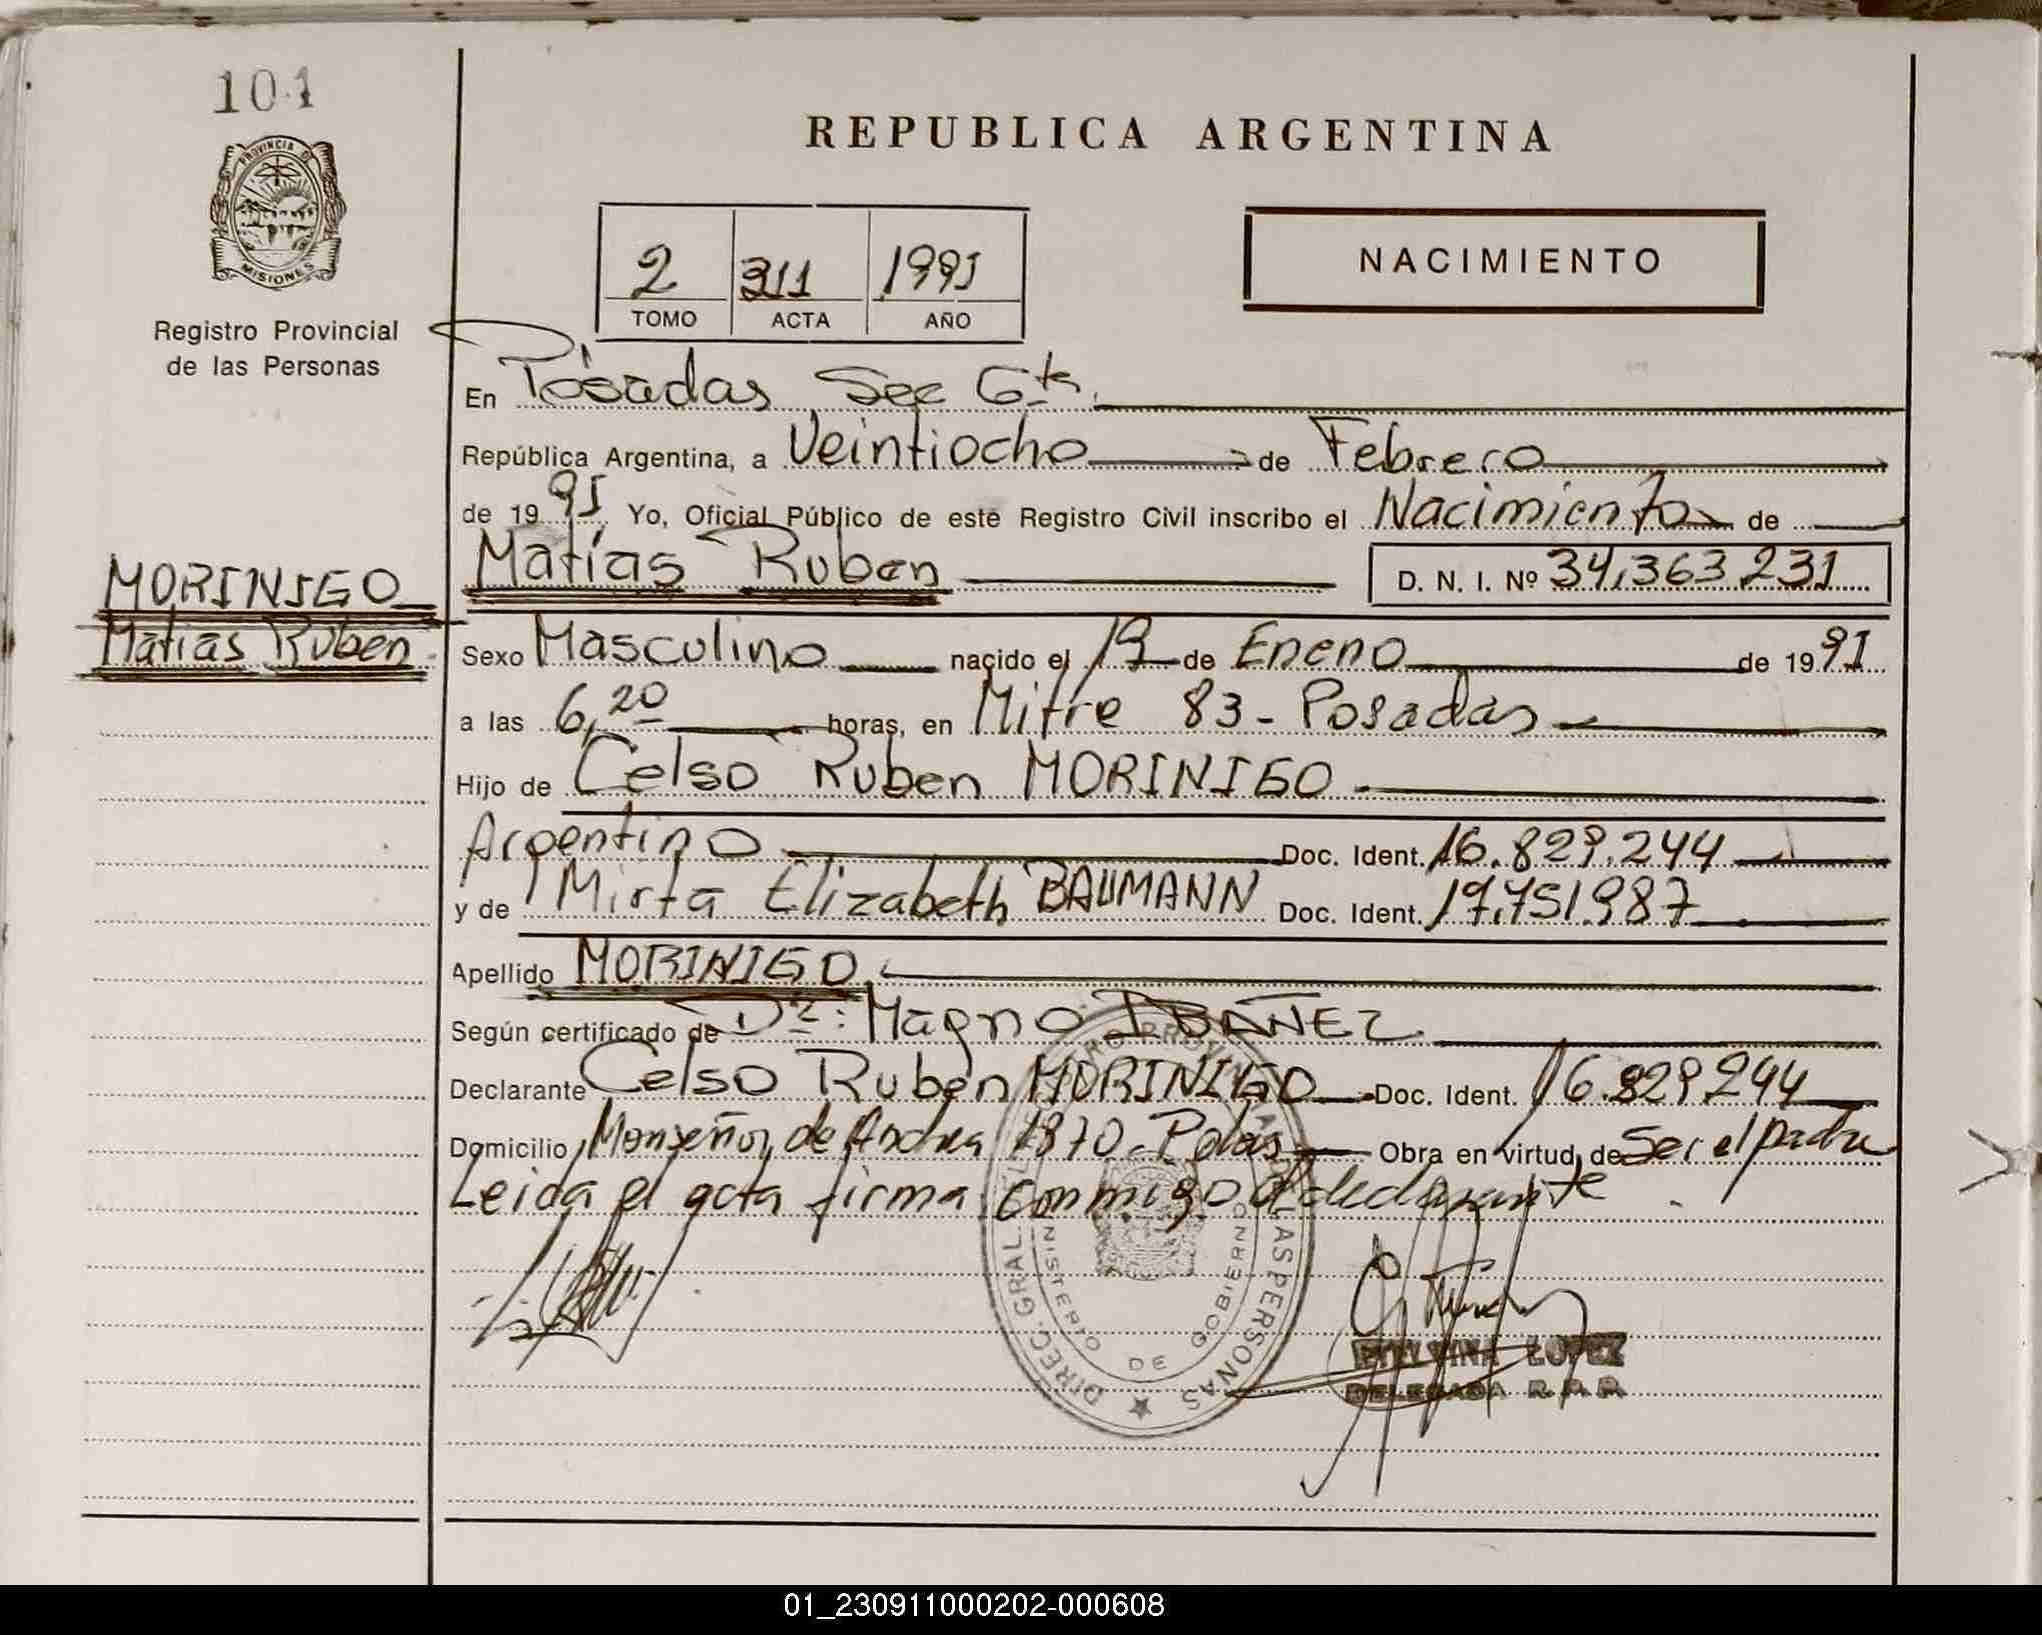 101
PROVINCIA DE
MISIONES
Registro Provincial
de las Personas
REPUBLICA ARGENTINA
2 311 1991
TOMO ACTA AÑO
NACIMIENTO
En Posadas Sec 6ta.
República Argentina, a Veintiocho de Febrero
de 1991 Yo, Oficial Público de este Registro Civil inscribo el Nacimiento de
Matías Ruben D. N. I. Nº 34.363.231
MORINIGO
Matias Ruben
Sexo Masculino nacido el 19 de Enero de 1991
a las 6,20 horas, en Mitre 83 - Posadas
Hijo de Celso Ruben MORINIGO
Argentino Doc. Ident. 16.829.244
y de Mirta Elizabeth BAUMANN Doc. Ident. 17.751.987
Apellido MORINIGO
Según certificado de Dr: Magno IBAÑEZ
Declarante Celso Ruben MORINIGO Doc. Ident. 16.829.244
Domicilio Monseñor de Andrea 1870 - Pdas Obra en virtud de Ser el padre
Leida el acta firma conmigo el declarante
DIREC. GRAL. DE LAS PERSONAS
MINISTERIO DE GOBIERNO
LOPEZ
DELEGADA R.P.P.
01_230911000202-000608